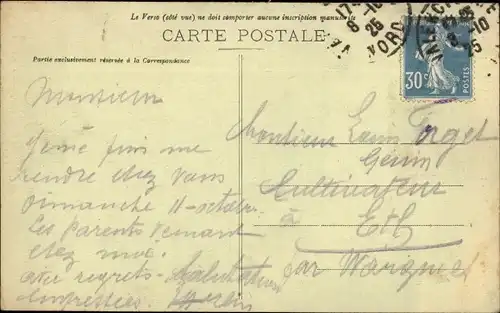 Le Verso (côté vue) ne doit comporter aucune inscription manuscrite
CARTE POSTALE
Partie exclusivement réservée à la Correspondance
17
8-10
25
NORD
10
25
30c
POSTES
Monsieur
me
rendre chez vous
Dimanche 11 octobre
les parents venant
chez moi
regrets Salutations
Empressées
Monsieur Louis Forget
Cultivateur
à
Eth
par Wargnies